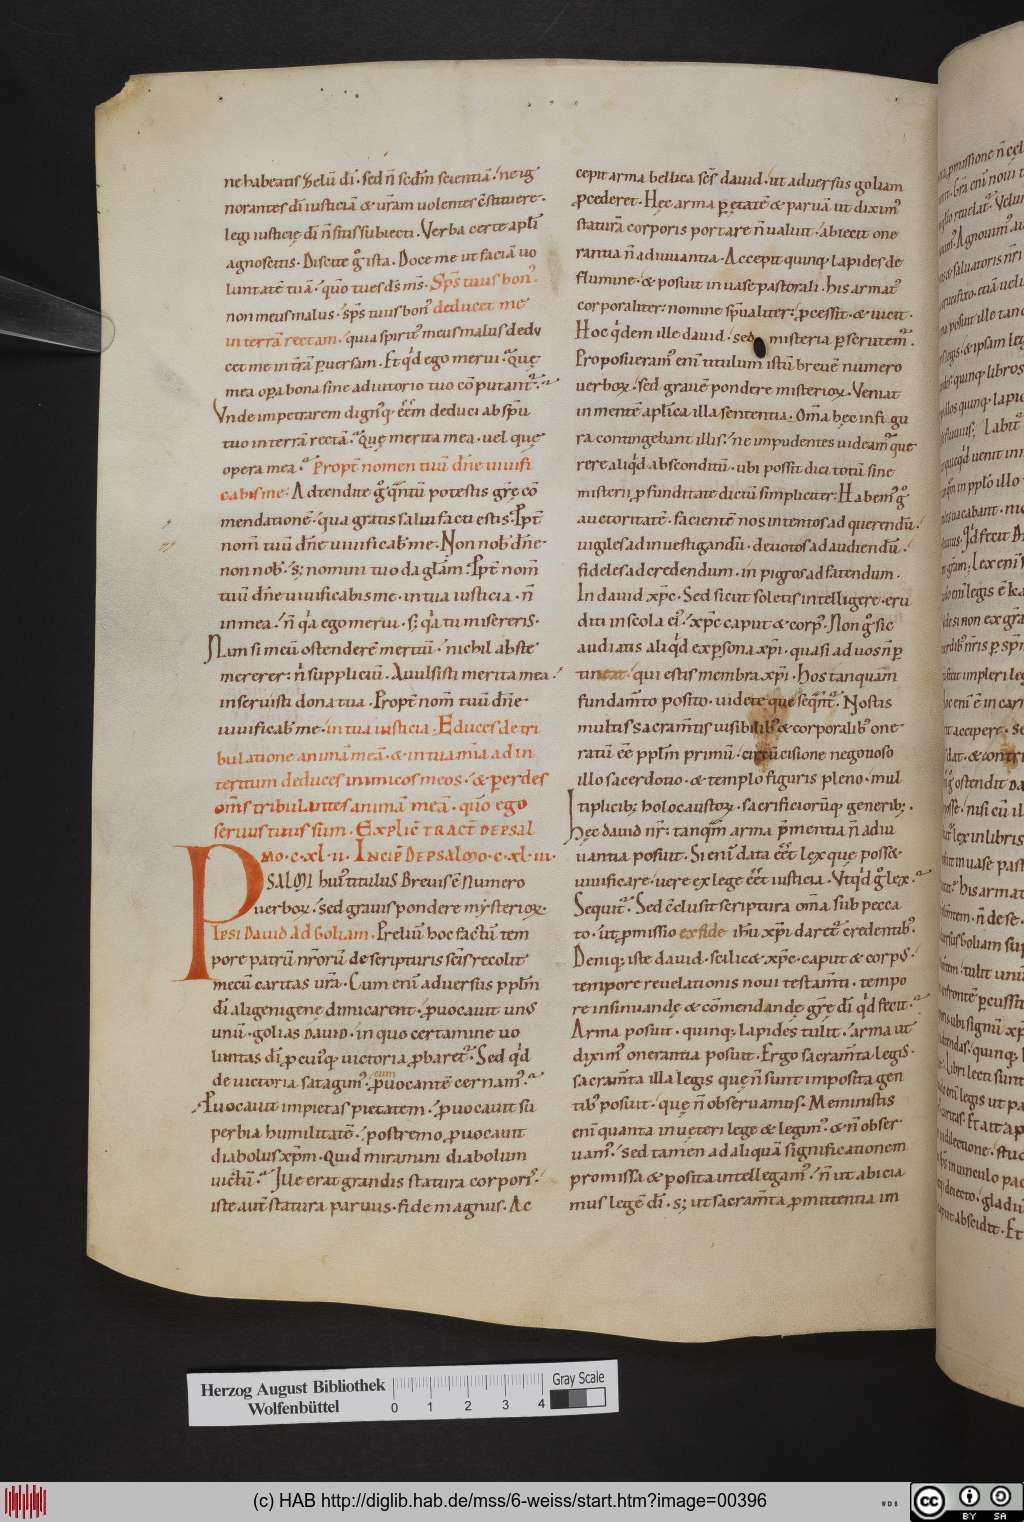 ne habeatis zelū dī. sed n̄ sedm̄ scientiā. ne ig
norantes dī iusticiā & ur̄am uolentes c̄stituere.
legi iusticię dī n̄ sitis subiecti. Verba certe apl̄i
agnoscitis. Discite g̊ ista. Doce me ut faciā uo
luntatē tuā. qūo tu es ds̄ ms̄. Sps̄ tuus bon᷒.
non meus malus. sps̄ tuus bon᷒ deducet me
in terrā rectam. quia spirit᷒ meus malus dedu
cet me in t̄rā puersam. Et qd̓ ego merui. Quę
mea opa bona sine adiutorio tuo cōputant᷑.
Vnde impetrarem dign᷒q; eēm deduci ab spū
tuo in terrā rectā. Quę merita mea. uel quę
opera mea. Propt̄ nomen tuū dn̄e uiuifi
cabis me. Adtendite g̊ qn̄tū potestis gr̄ę cō
mendationē. qua gratis salui facti estis. Ppt̄
nom̄ tuū dn̄e uiuificab᷒ me. Non nob̄ dn̄e
non nob̄. s; nomini tuo da gl̄am. Ppt̄ nom̄
tuū dn̄e uiuificabis me. in tua iusticia. n̄
in mea. n̄ qa ego merui. s; qa tu misereris.
Nam si meū ostenderē meritū. nichil abs te
mererer. n̓ suppliciū. Auulsisti merita mea.
inseruisti dona tua. Propt̄ nom̄ tuū dn̄e
uiuificab᷒ me. in tua iusticia. Educes de tri
bulatione animā meā. & in tua mīa ad in
teritum deduces inimicos meos. & perdes
om̄s tribulantes animā meā. qūo ego
seruus tuus sum. EXPLIĒ TRACT̄ DE PSAL
MO. C. XL. II. INCIP̄ DE PSALMO. C. XL. III.
PSALMI hui᷒ titulus Breuis ē Numero
uerboꝝ. sed grauis pondere mysterioꝝ.
IPSI DAVID AD GOLIAM. Preliū hoc factū tem
pore patrū nr̄orū de scripturis scīs recolit
mecū caritas ur̄a. Cum enī aduersus pplm̄
dī aligenigenę dimicarent. puocauit un᷒
unū. golias DAVID. in quo certamine uo
luntas dī p cui᷒q; uictoria pbaret᷑. Sed qd̓
de uictoria satagim᷒. puocantē cernam᷒.
cum
Puocauit impietas pietatem. puocauit su
perbia humilitatē. postremo puocauit
diabolus xp̄m. Quid miramini diabolum
uictū. Ille erat grandis statura corpori᷒.
iste aut̄ statura paruus. fide magnus. Ac
cepit arma bellica scs̄ dauid. ut aduersus goliam
pcederet. Hęc arma p ętatē & paruā ut dixim᷒
staturā corporis portare n̄ ualuit. abiecit one
rantia n̄ adiuuantia. Accepit quinq; lapides de
flumine. & posuit in uase pastorali. his armat᷒
corporaliter. nomine spūaliter. pcessit. & uicit.
Hoc qdem ille dauid. sed misteria pscrutem᷑.
Proposueram᷒ enī titulum istū breuē numero
uerboꝝ. sed grauē pondere misterioꝝ. Veniat
in mentē aplica illa sententia. Om̄a hęc in figu
ra contingebant illis. ne impudentes uideam᷑ que
rere aliqd absconditū. ubi possit dici totū sine
misterii pfunditate dictū simpliciter. Habem᷒ g̊
auctoritatē. facientē nos intentos ad querendū.
uigiles ad inuestigandū. deuotos ad audiendū.
fideles ad credendum. inpigros ad fatendum.
In dauid xp̄c. Sed sicut soletis intelligere. eru
diti in scola ei᷒. xp̄c caput & corp᷒. Non g̊ sic
audiatis aliqd ex psona xp̄i. quasi ad uos n̄ p
tineat. qui estis membra xp̄i. Hos tanquam
fundam̄to posito. uidete que seqn̄t᷑. Nostis
multis sacram̄tis uisibilib᷒ & corporalib᷒ one
ratū eē pplm̄ primū. circūcisione negotioso
illo sacerdotio. & templo figuris pleno. mul
tiplicib; holocaustoꝝ. sacrificiorūq; generib;.
Hęc dauid nr̄. tanqm̄ arma pmentia n̄ adiu
uantia posuit. Si enī data eēt lex que posse
uiuificare. uere ex lege eēt iusticia. Vtqd g̊ lex.
Sequit᷑. Sed c̄clusit scriptura om̄a sub pecca
to. ut pmissio ex fide ihū xp̄i daret᷑ credentib᷒.
Deniq; iste dauid. scilic& xp̄c. caput & corp᷒.
tempore reuelationis noui testam̄ti. tempo
re insinuandę & cōmendandę gr̄ę dī qd fecit.
Arma posuit. quinq; lapides tulit. arma ut
dixim᷒ onerantia posuit. Ergo sacram̄ta legis.
sacram̄ta illa legis que n̄ sunt imposita gen
tib᷒ posuit. quę n̄ obseruamus. Meministis
enī quanta in ueteri lege & legim᷒. & n̄ obser
uam᷒. sed tamen ad aliquā significationem
promissa & posita intellegam᷒. n̄ ut abicia
mus legē dī. s; ut sacram̄ta pmittentia im
Herzog August Bibliothek
Wolfenbüttel
0 1 2 3 4
Gray Scale
(c) HAB http://diglib.hab.de/mss/6-weiss/start.htm?image=00396
WDB
cc BY SA